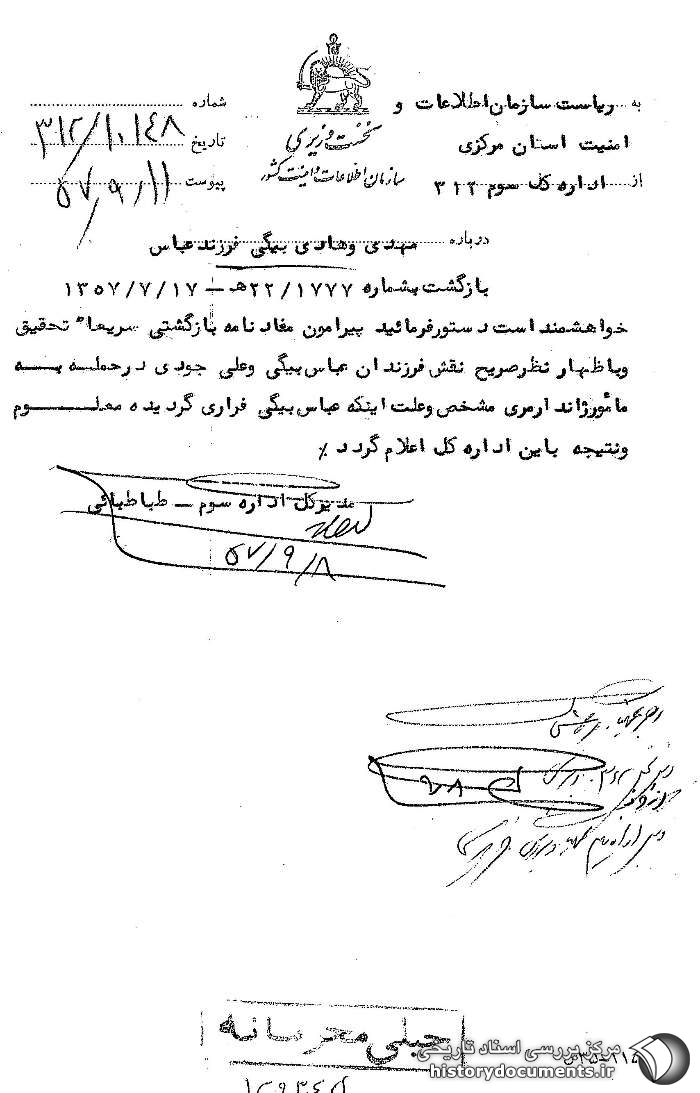 به ریاست سازمان اطلاعات و
امنیت استان مرکزی
از اداره کل سوم ۳۱۲
نخست وزیری
سازمان اطلاعات و امنیت کشور
شماره ۳۱۲/۱۰۱۴۸
تاریخ ۵۷/۹/۱۱
پیوست
درباره مهدی وهادی بیگی فرزند عباس
بازگشت بشماره ۲۲/۱۷۷۷هـ – ۱۳۵۷/۷/۱۷
خواهشمند است دستور فرمائید پیرامون مفاد نامه بازگشتی سریعا" تحقیق
وباظهار نظر صریح نقش فرزندان عباس بیگی وعلی جودی در حمله بــه
مأمور ژاندارمری مشخص وعلت اینکه عباس بیگی فراری گردیده معلــوم
ونتیجه باین اداره کل اعلام گردد ٪
مدیرکل اداره سوم – طباطبائی
۵۷/۹/۸
خیلی محرمانه
مرکز بررسی اسناد تاریخی
historydocuments.ir